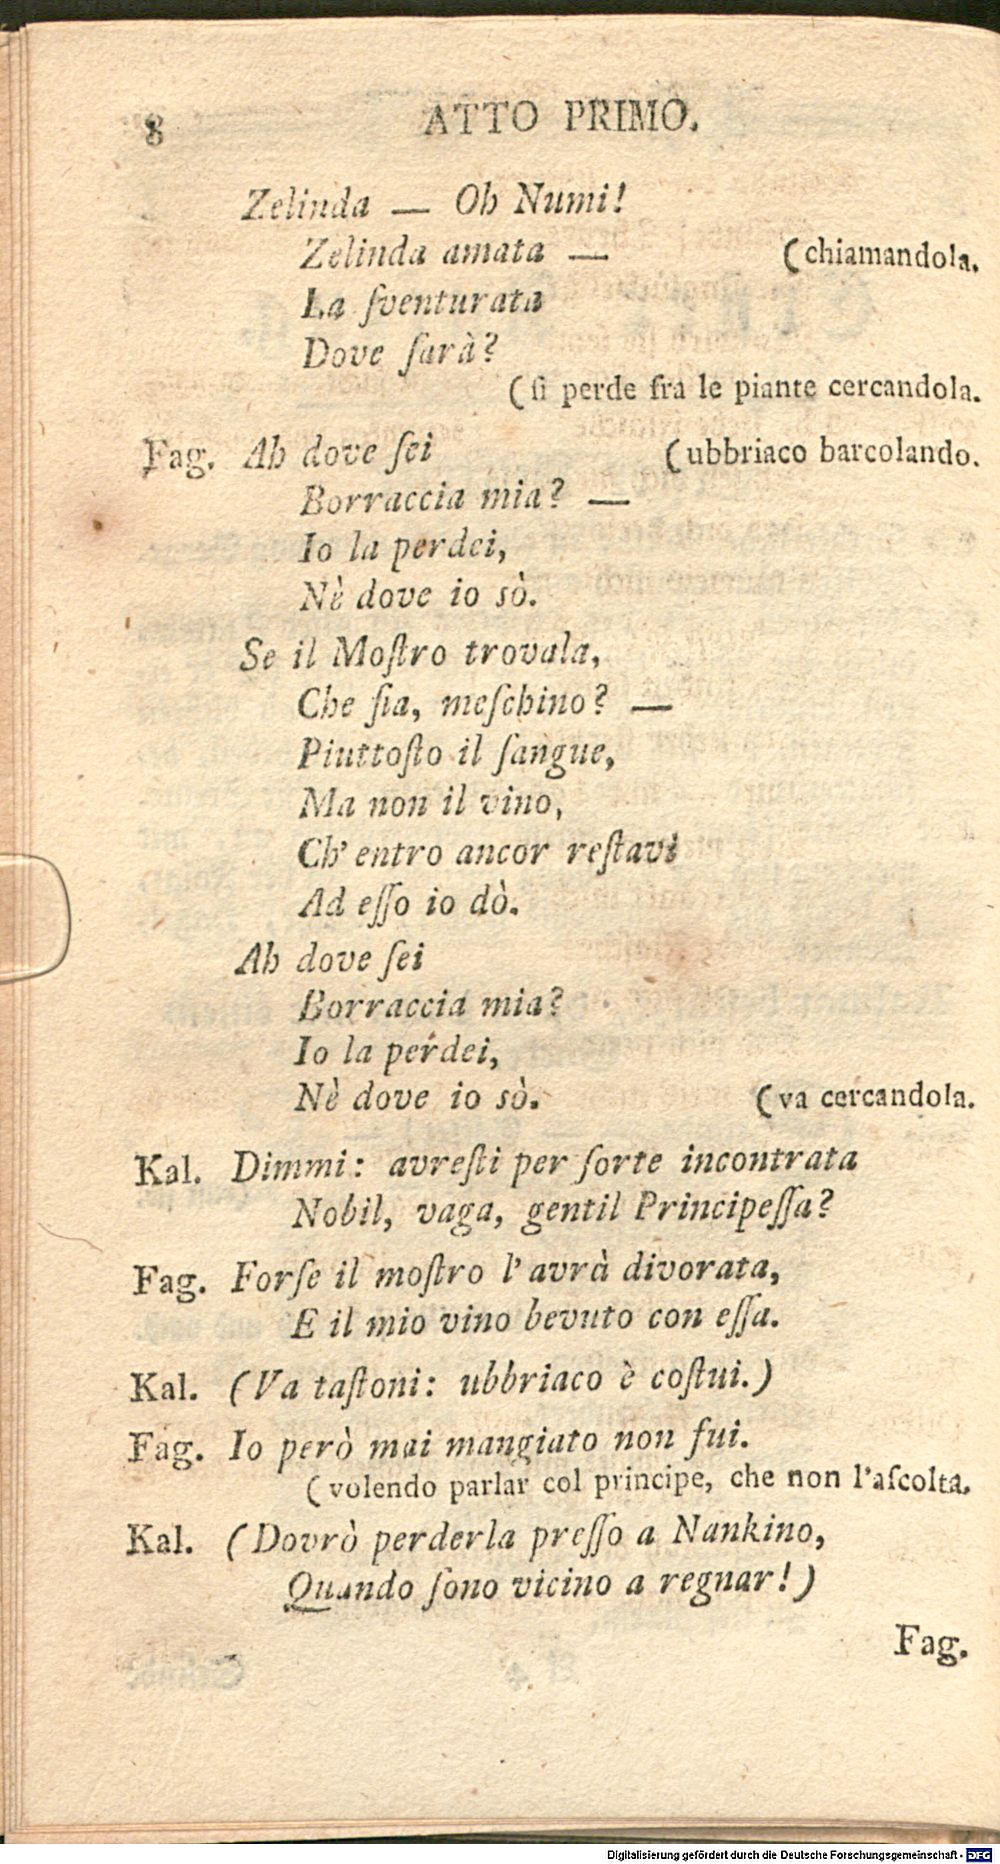 8 ATTO PRIMO.
Zelinda — Oh Numi!
Zelinda amata — (chiamandola.
La ſventurata
Dove ſarà?
(ſi perde fra le piante cercandola.
Fag. Ah dove ſei (ubbriaco barcolando.
Borraccia mia? —
Io la perdei,
Nè dove io sò.
Se il Moſtro trovala,
Che ſia, meſchino? —
Piuttoſto il ſangue,
Ma non il vino,
Ch' entro ancor reſtavi
Ad eſſo io dò.
Ah dove ſei
Borraccia mia?
Io la perdei,
Nè dove io sò. (va cercandola.
Kal. Dimmi: avreſti per ſorte incontrata
Nobil, vaga, gentil Principeſſa?
Fag. Forſe il moſtro l' avrà divorata,
E il mio vino bevuto con eſſa.
Kal. (Va taſtoni: ubbriaco è coſtui.)
Fag. Io però mai mangiato non fui.
(volendo parlar col principe, che non l'aſcolta.
Kal. (Dovrò perderla preſſo a Nankino,
Quando ſono vicino a regnar!)
Fag.
Digitalisierung gefördert durch die Deutsche Forschungsgemeinschaft - DFG